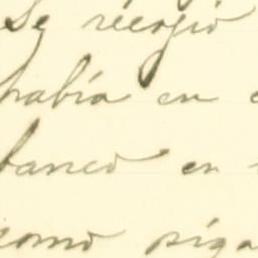 Se recogió
había en
banco en
como siga